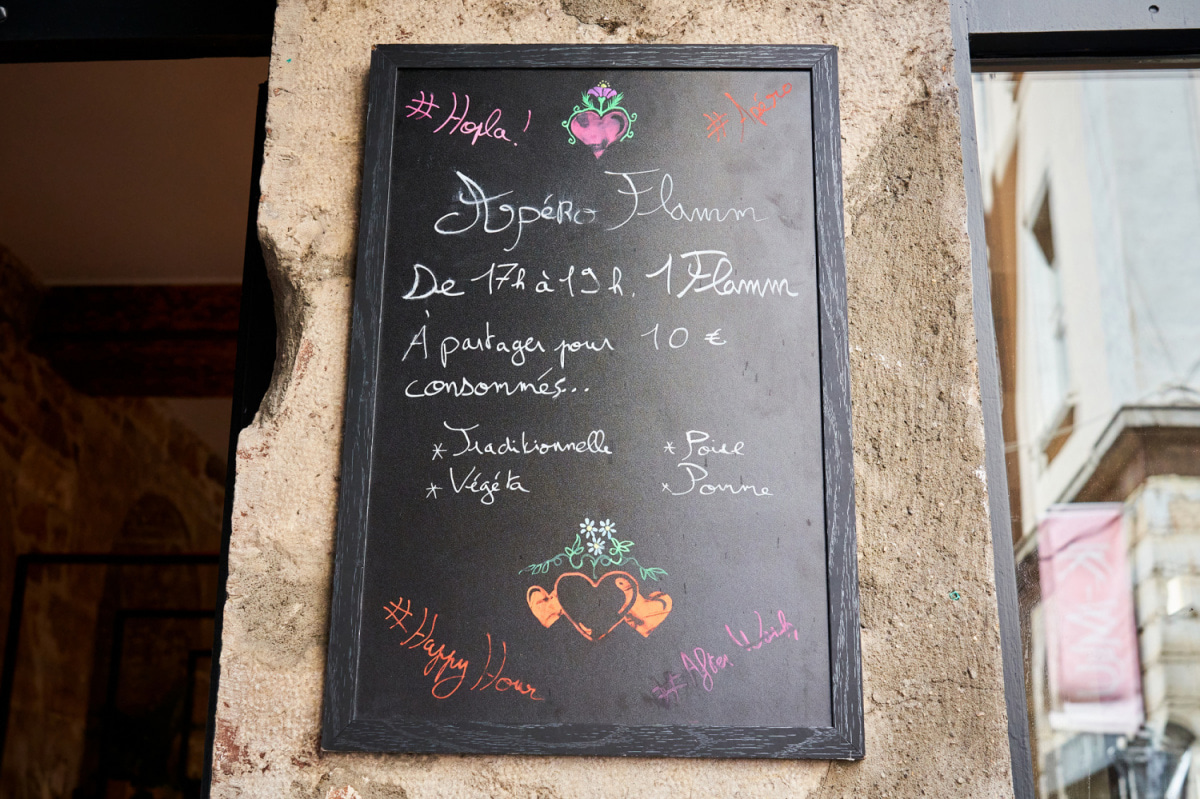 #Hopla!
#Apéro
Apéro Flamm
De 17h à 19h. 1 Flamm
À partager pour 10 €
consommés...
* Traditionnelle
* Poire
* Végéta
* Pomme
#Happy Hour
#After Work